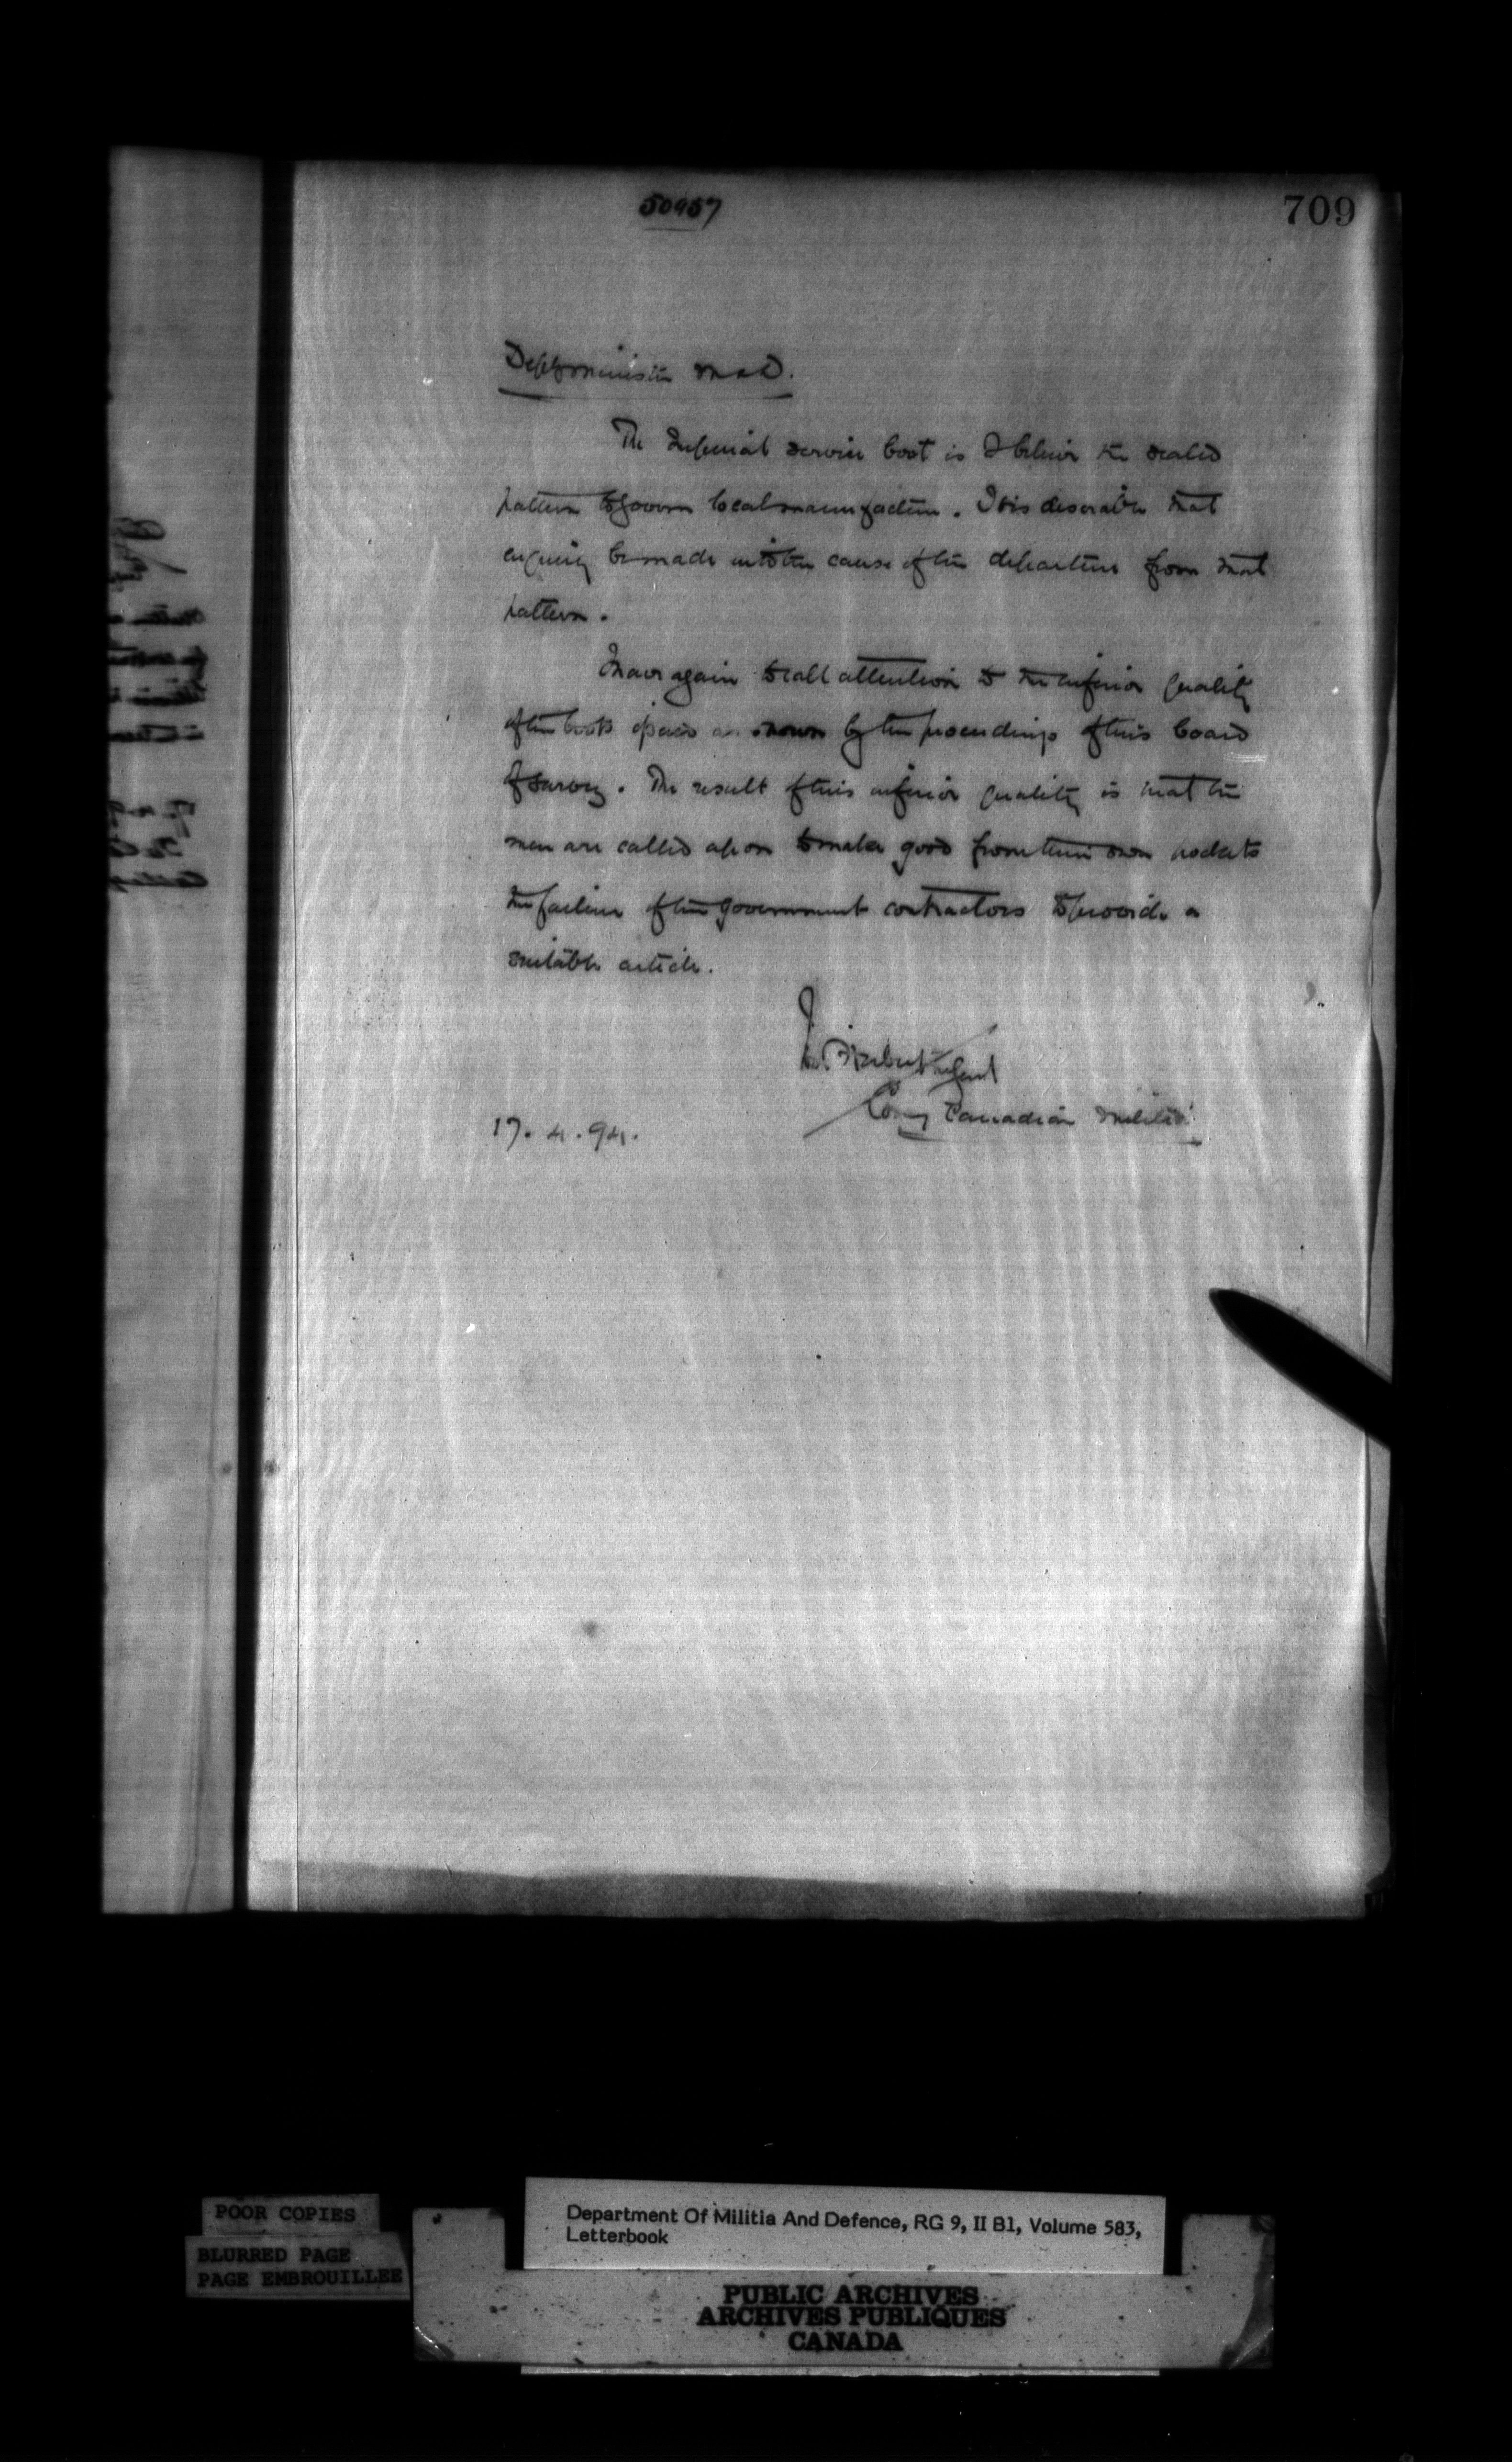 50957
709
Dept Minister M & D.
The Imperial service boot is I believe the sealed
pattern to govern local manufacture. It is desirable that
enquiry be made into the cause of the departure from that
pattern.
I have again to call attention to the inferior quality
of the boots as shown by the proceedings of this board
of survey. The result of this inferior quality is that the
men are called upon to make good from their own pockets
the failure of the government contractors to provide a
suitable article.
Herbert
Comg Canadian Militia
17.4.94.
POOR COPIES
BLURRED PAGE
PAGE EMBROUILLEE
Department Of Militia And Defence, RG 9, II B1, Volume 583,
Letterbook
PUBLIC ARCHIVES
ARCHIVES PUBLIQUES
CANADA